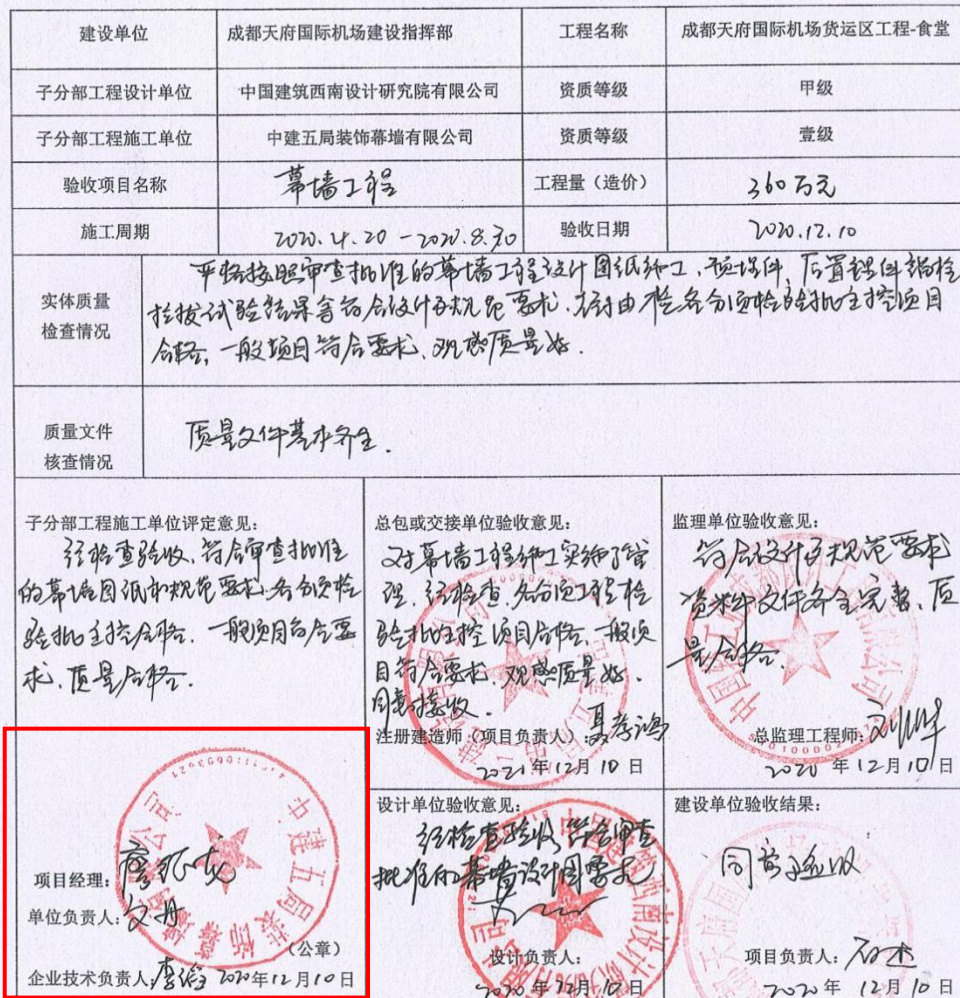 建设单位 成都天府国际机场建设指挥部 工程名称 成都天府国际机场货运区工程-食堂
子分部工程设计单位 中国建筑西南设计研究院有限公司 资质等级 甲级
子分部工程施工单位 中建五局装饰幕墙有限公司 资质等级 壹级
验收项目名称 幕墙工程 工程量（造价） 360万元
施工周期 2020.4.20-2020.8.30 验收日期 2020.12.10
实体质量
检查情况
严格按照审查批准的幕墙工程设计图纸施工，预埋件、后置锚件
拉拔试验结果等符合设计及规范要求，各分项检验批主控项目
合格，一般项目符合要求，观感质量好．
质量文件
核查情况
质量文件基本齐全．
子分部工程施工单位评定意见：
经检查验收，符合审查批准
的幕墙图纸和规范要求，各分项检
验批主控合格，一般项目符合要
求，质量合格．
项目经理：
单位负责人：文丹
（公章）
企业技术负责人： 2020年12月10日
中建五局装饰幕墙有限公司
总包或交接单位验收意见：
对幕墙工程施工实施了管
理，经检查，各分项工程检
验批主控项目合格，一般项
目符合要求，观感质量好．
同意接收．
注册建造师（项目负责人）：
2020年12月10日
监理单位验收意见：
符合设计及规范要求
资料文件齐全完整，质
量合格．
总监理工程师：
2020年12月10日
设计单位验收意见：
经检查验收，符合审查
批准的幕墙设计图要求
设计负责人：
2020年12月10日
建设单位验收结果：
同意验收
项目负责人：石杰
2020年12月10日